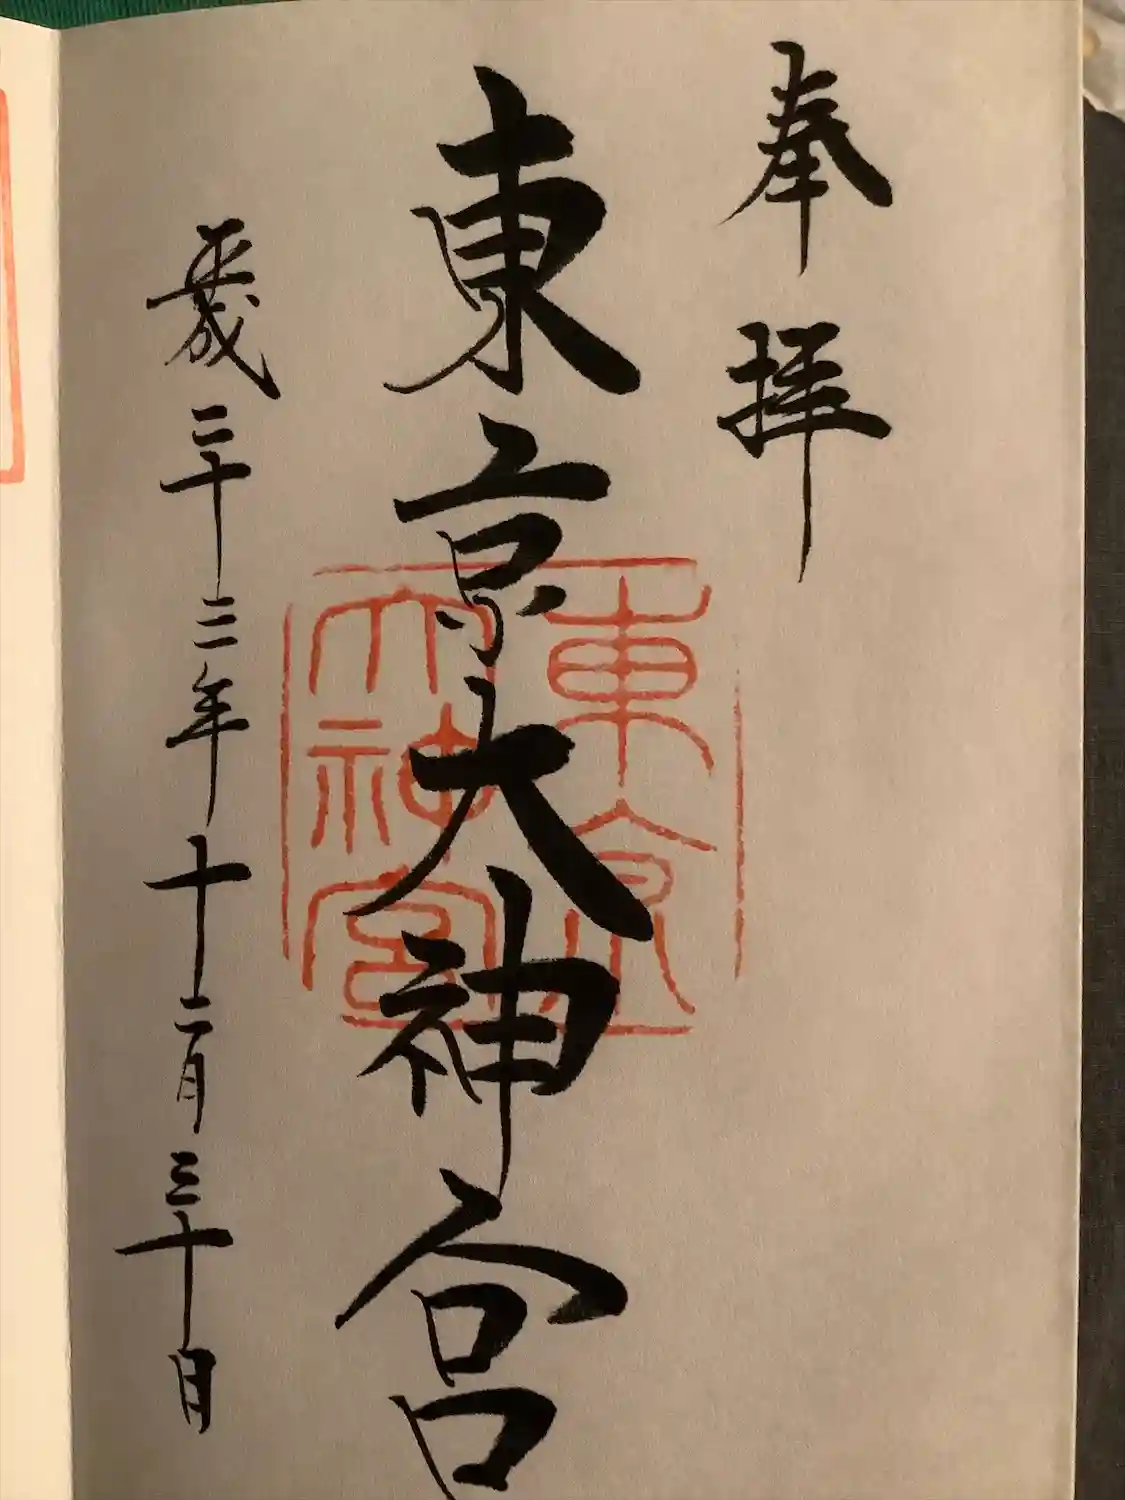 奉拝
東京大神宮
平成二十二年十二月三十日
東京
大神宮